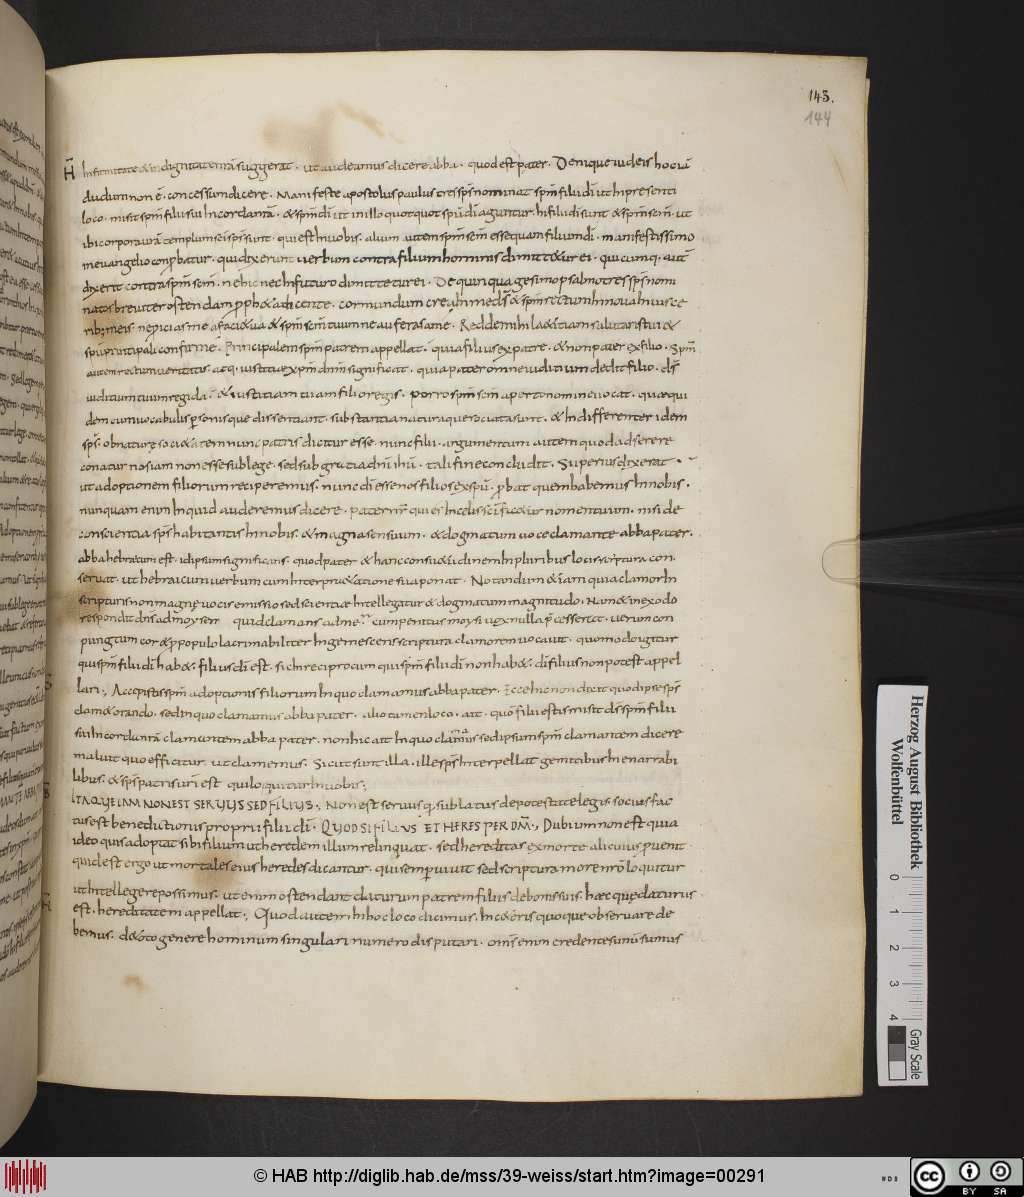 143.
144
Infirmitate &in dignitatem nr̄a suggerat . ut audeamus dicere abba . quod est pater . Denique iudeis hoc iā
dudum non ē . concessum dicere . Manifeste apostolus paulus tres sp̄s nominat sp̄m filii dī ut In presenti
loco . misit sp̄m filii sui In corda nr̄a . & sp̄m dī ut in illo quotquot sp̄u dī aguntur . hi filii dī sunt & sp̄m sc̄m . ut
ibi corpora ur̄a templum sc̄i sp̄s sunt . qui est In uobis . alium autem sp̄m sc̄m esse quam filium dī . manifestissimo
in euangelio conprobatur . qui dixerunt uerbum contra filium hominis dimittetur ei . quicumq . aut
dixerit contra sp̄m sc̄m . nec hic nec In futuro dimittetur ei . De quinquagesimo psalmo tres sp̄s nom
natos breuiter ostendam prph&a dicente . cor mundum crea In me ds̄ & sp̄m rectum Innoua In uisce
rib; meis . ne picias me a facie tua & sp̄m sc̄m tuum ne auferas a me . Redde mihi l&itiam salutaris tui &
sp̄u principali confirma me . Principalem sp̄m patrem appellat . quia filius ex patre . & non pater ex filio . Sp̄m
autem rectum ueritatis . atq . iustitiae xp̄m dn̄m significat . quia pater omne iuditium dedit filio . ds̄
iuditium tuum regi da . & iustitiam tuam filio regis . porro sp̄m sc̄m aperto nomine uocat . quae qui
dem cum uocabulis personisque dissentiant . substantia natura quae sociata sunt . & Indifferenter idem
sp̄s . ob naturę soci&atem nunc patris dicitur esse . nunc filii . argumentum autem quod adserere
conatur nos iam non esse sub lege . sed sub gratia dn̄i ihū . tali fine concludit . Superius dixerat .
ut adoptionem filiorum reciperemus . nunc dī esse nos filios ex sp̄u . probat quem habemus In nobis .
nunquam enim Inquid auderemus dicere . pater nr̄ qui es In celis sc̄ificetur nomen tuum . nisi de
conscientia sp̄s habitantis In nobis . & magna sensuum . & dogmatum uoce clamante abba pater .
abba hebraicum est . id ipsum significans . quod pater & hanc consuetudinem In pluribus locis scriptura con
seruat . ut hebraicum uerbum cum Interpr&atione sua ponat . Notandum &iam quia clamor In
scripturis non magnę uocis emissio sed scientiae Intellegatur & dogmatum magnitudo . Nam & in exodo
respondit dn̄s ad moysen quid clamans ad me . cum penitus moysi uox nulla p̄cesserat . uerum con
punctum cor & pro populo lacrimabiliter Ingemescens scriptura clamorem uocauit . quomodo igitur
qui sp̄m filii dī hab& . filius dī est . sic In reciprocum qui sp̄m filii dī non hab& . dī filius non potest appel
lari ., Accepistis sp̄m adoptionis filiorum In quo clamamus abba pater . Ecce hic non dixit quod ipse sp̄s
clam& orando . sed in quo clamamus abba pater . alio tamen loco . ait . quo[ni]ā filii estis misit ds̄ sp̄m filii
sui In corda nr̄a clamantem abba pater . non hic ait In quo clamamus sed ipsum sp̄m clamantem dicere
maluit quo efficitur . ut clamemus . Sicut sunt illa . ille sp̄s Interpellat gemitibus Inenarrabi
libus . & sp̄s patris ur̄i est qui loquitur In uobis .,
ITAQUE IAM NON EST SERUUS SED FILIUS ., Non est seruus q; sublatus de potestate legis . socius fac
tus est benedictionis proprii filii dī . QUOD SI FILIUS ET HERES PER DM̄ ., Dubium non est quia
ideo quis adoptat sibi filium ut heredem illum relinquat . sed hereditas ex morte alicuius p̄uenit
quid est ergo ut mortales eius heredes dicantur . qui semp uiuit sed scriptura more nr̄o loquitur
ut Intellegere possimus . ut enim ostendant daturum patrem filiis de bonis suis . haec quę daturus
est . hereditatem appellat ., Quod autem In hoc loco dicimus . In c&eris quoque obseruare de
bemus . de toto genere hominum singulari numero disputari . omīs enim credentes unū sumus
Herzog August Bibliothek
Wolfenbüttel
0 1 2 3 4
Gray Scale
© HAB http://diglib.hab.de/mss/39-weiss/start.htm?image=00291
cc BY SA